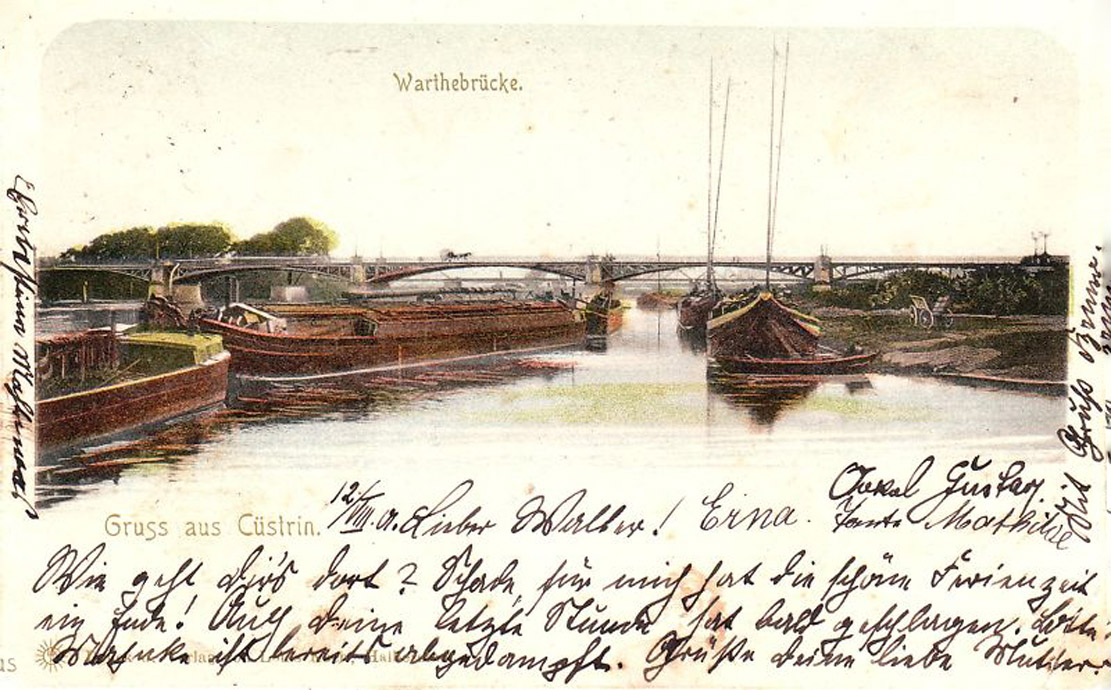 Warthebrücke.
Gruss aus Cüstrin.
12/VIII. 01. Lieber Walter! Erna.
Onkel Gustav.
Tante Mathilde
Wie geht Dir's dort? Schade, für mich hat die schöne Ferienzeit
ein Ende! Auch Deine letzte Stunde hat bald geschlagen.
ist bereits abgedampft. Grüße Deine liebe Mutter.
Mit Gruß